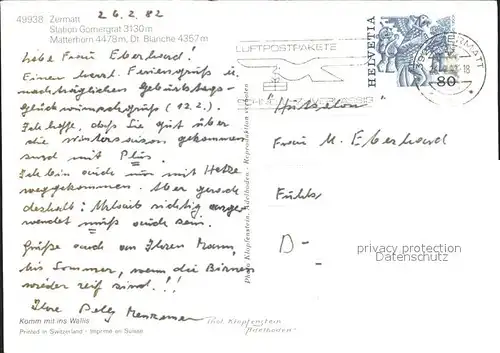 49938 Zermatt
26.2.82
Station Gornergrat 3130 m
Matterhorn 4478 m, Dt. Blanche 4357 m
Liebe Frau Eberhard!
Einen herzl. Feriengruß u.
nachträglichen Geburtstags-
glückwunschgruß (12.2.).
Ich hoffe, daß Sie gut über
die Wintersaison gekommen
sind mit Plus.
Ich bin auch nur mit Hetze
weggekommen. Aber gerade
deshalb: Urlaub richtig ange-
wendet muß auch sein.
Grüße auch an Ihren Mann,
bis Sommer, wenn die Birnen
wieder reif sind!!!
Ihre
Komm mit ins Wallis
Printed in Switzerland - Imprimé en Suisse
Photo Klopfenstein, Adelboden - Reproduktion verboten
LUFTPOSTPAKETE
HELVETIA
80
ZERMATT
Frau M. Eberhard
D-
Thol. Klopfenstein
Adelboden
privacy protection
DATENSCHUTZ